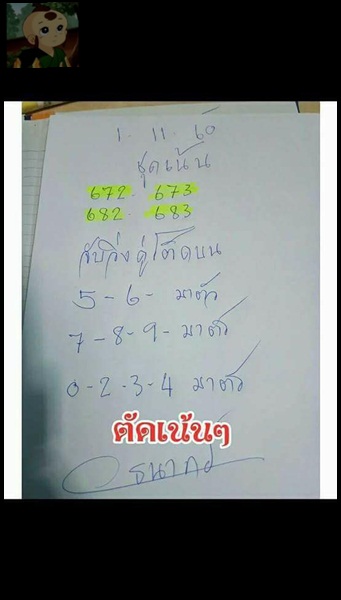 1. 11. 60
ชุดเน้น
672. 673
682. 683
จับวิ่งคู่โต๊ดบน
5 - 6 - มาตัว
7 - 8 - 9 - มาตัว
0 - 2 - 3 - 4 มาตัว
ตัดเน้นๆ
ธนากร